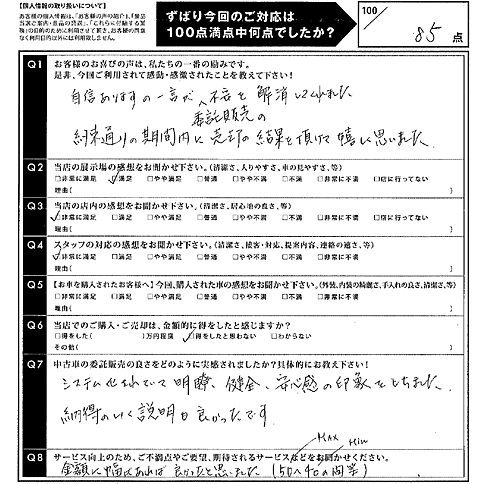 【個人情報の取り扱いについて】
ずばり今回のご対応は
100点満点中何点でしたか?
100/
85 点
Q1 お客様のお喜びの声は、私たちの一番の励みです。
是非、今回ご利用されて感動・感激されたことを教えて下さい!
自信ありますの一言が、不安を解消してくれました
委託販売の
約束通りの期間内に売却の結果を頂けて嬉しく思いました。
Q2 当店の展示場の感想をお聞かせ下さい。(清潔さ、入りやすさ、車の見やすさ、等)
□非常に満足 □満足 □やや満足 □普通 □やや不満 □不満 □非常に不満 □店に行ってない
理由( )
Q3 当店の店内の感想をお聞かせ下さい。(清潔さ、居心地の良さ、等)
□非常に満足 □満足 □やや満足 □普通 □やや不満 □不満 □非常に不満 □店に行ってない
理由( )
Q4 スタッフの対応の感想をお聞かせ下さい。(清潔さ、接客・対応、提案内容、連絡の速さ、等)
□非常に満足 □満足 □やや満足 □普通 □やや不満 □不満 □非常に不満
理由( )
Q5 【お車を購入されたお客様へ】今回、購入された車の感想をお聞かせ下さい。(外装、内装の綺麗さ、手入れの良さ、清潔さ、等)
□非常に満足 □満足 □やや満足 □普通 □やや不満 □不満 □非常に不満
理由( )
Q6 当店でのご購入・ご売却は、金額的に得をしたと感じますか?
□得をした( )万円程度 □得をしたと思わない □わからない
その他( )
Q7 中古車の委託販売の良さをどのように実感されましたか?具体的にお教え下さい!
システム化されていて明瞭、健全、安心感の印象をもちました。
納得のいく説明も良かったです
Q8 サービス向上のため、ご不満点やご要望、期待されるサービスなどをお聞かせください。
MAX Min
金額に幅があれば良かったと思いました (50へ40の同等)